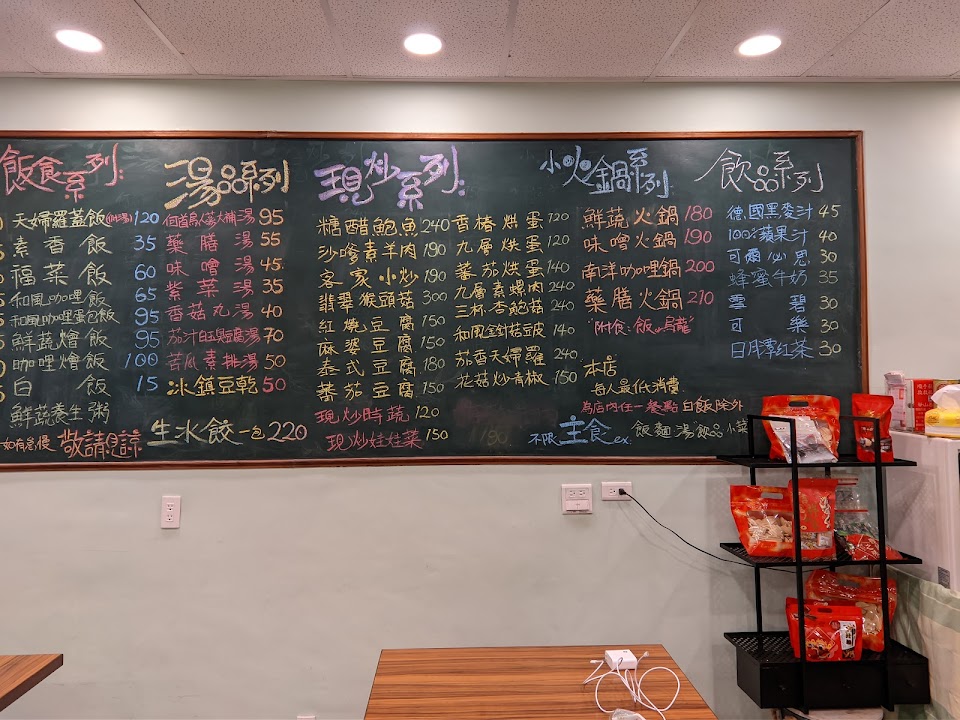 飯食系列:
天婦羅蓋飯 120
素香飯 35
福菜飯 60
和風咖哩飯 65
和風咖哩蛋包飯 95
鮮蔬燴飯 95
咖哩燴飯 100
白飯 15
鮮蔬養生粥
如有怠慢 敬請見諒
湯品系列
何首烏人蔘大補湯 95
藥膳湯 55
味噌湯 45
紫菜湯 35
香菇丸湯 40
茄汁白玉臭豆腐湯 70
苦瓜素排湯 50
冰鎮豆乾 50
生水餃 一包220
現炒系列:
糖醋鮑魚 240
沙嗲素羊肉 190
客家小炒 190
翡翠猴頭菇 300
紅燒豆腐 150
麻婆豆腐 150
泰式豆腐 180
蕃茄豆腐 150
現炒時蔬 120
現炒娃娃菜 150
香椿烘蛋 120
九層烘蛋 120
蕃茄烘蛋 140
九層素螺肉 240
三杯杏鮑菇 240
和風金針菇豆皮 140
茄香天婦羅 240
花菇炒青椒 150
小火鍋系列:
鮮蔬火鍋 180
味噌火鍋 190
南洋咖哩鍋 200
藥膳火鍋 210
"附食:飯or烏龍"
本店
每人最低消費
為店內任一餐點 白飯除外
不限 主食 ex. 飯麵湯飲品小菜
飲品系列
德國黑麥汁 45
100%蘋果汁 40
可爾必思 30
蜂蜜牛奶 35
雪碧 30
可樂 30
日月潭紅茶 30